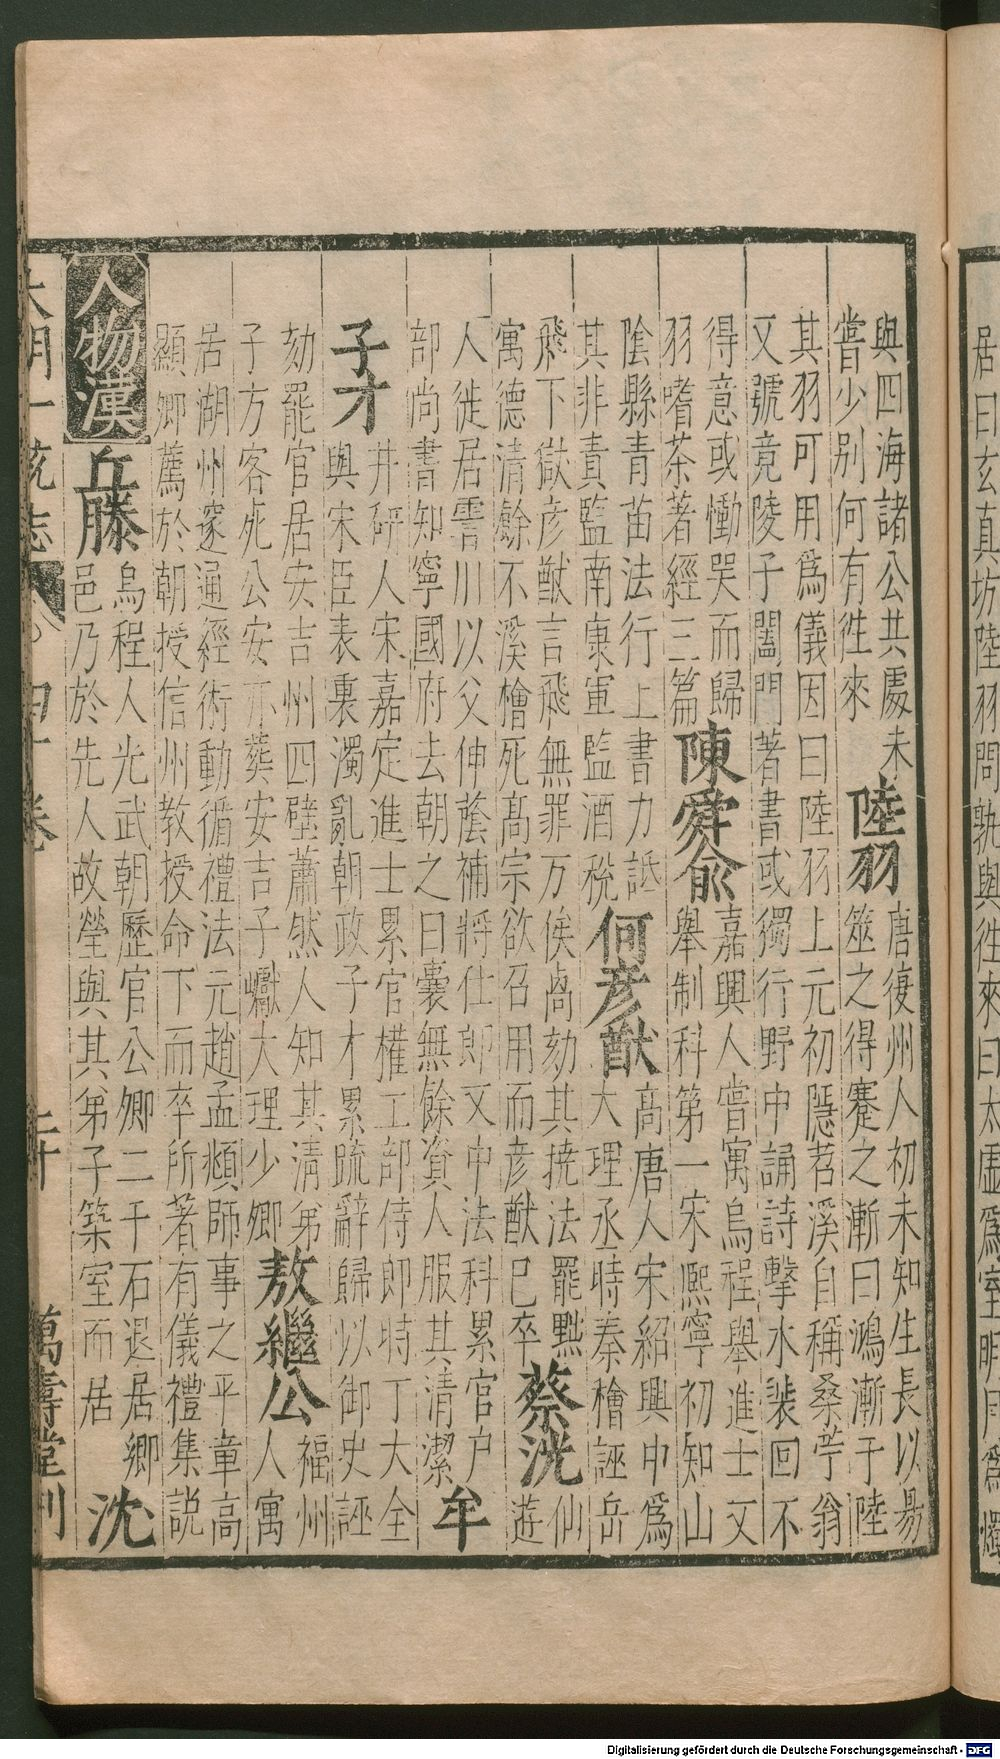 居曰玄真坊陸羽問孰與徃來曰太虛爲室明月爲燭
與四海諸公共處未
嘗少别何有徃來
陸羽
唐復州人初未知生長以易
筮之得蹇之漸曰鴻漸于陸
其羽可用爲儀因曰陸羽上元初隱苕溪自稱桑苧翁
又號竟陵子闔門著書或獨行野中誦詩擊水裴回不
得意或慟哭而歸
羽嗜茶著經三篇
陳舜俞
嘉興人嘗寓烏程舉進士又
舉制科第一宋熙寧初知山
陰縣青苗法行上書力詆
其非責監南康軍監酒稅
何彦猷
高唐人宋紹興中爲
大理丞時秦檜誣岳
飛下獄彦猷言飛無罪万俟卨劾其撓法罷黜
寓德清餘不溪檜死高宗欲召用而彦猷已卒
蔡洸
仙
遊
人徙居霅川以父伸蔭補將仕郎又中法科累官户
部尚書知寧國府去朝之日囊無餘資人服其清潔
牟
子才
井研人宋嘉定進士累官權工部侍郎時丁大全
與宋臣表裏濁亂朝政子才累疏辭歸以御史誣
劾罷官居安吉州四壁蕭然人知其清弟
子方客死公安亦葬安吉子巘大理少卿
敖繼公
福州
人寓
居湖州邃通經術動循禮法元趙孟頫師事之平章高
顯卿薦於朝授信州教授命下而卒所著有儀禮集説
人物漢
丘滕
烏程人光武朝歷官公卿二千石退居鄉
邑乃於先人故塋與其弟子築室而居
沈
大明一統志 四十卷 二十 萬壽堂刊
Digitalisierung gefördert durch die Deutsche Forschungsgemeinschaft - DFG